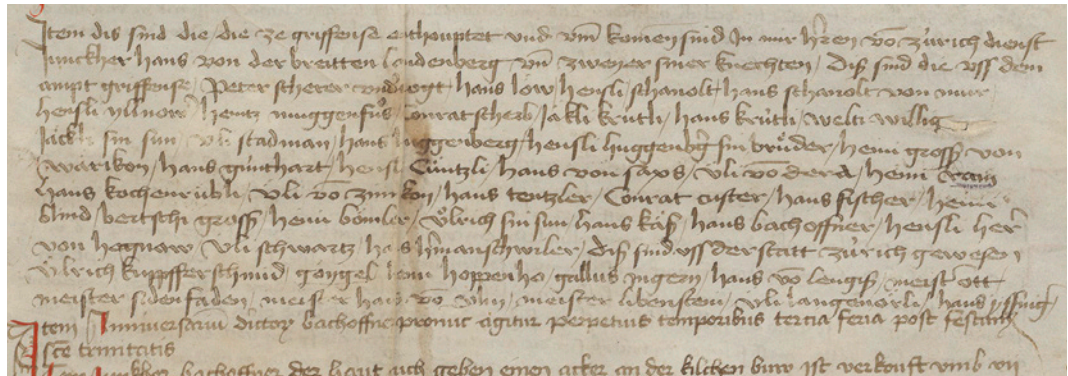 Item dis sind die / die ze griffense enthouptet und um̄ komen sind In mir hr̄en vō zürich dienst
Junckher hans von der breitten landenberg vn̄ zweyer siner knechten / Diß sind die vss dem
ampt griffense / Peter scherer vndvogt / hans low / hensli schanolt / hans schanolt von mur /
hensli yllnow / heintz muggenfuͦs / Conrat scherb / Jäkli krütli / hans krütli / welti willig
Jäckli sin sun / vli stadman / hans huggenberg / hensli huggenbḡ sin bruͦder / heini gross von
wärikon / hans günthart / hensli Cuͤntzli / hans von saxs / vli vō der A / heini
hans kochenrübli / vli vō zimikon / hans tentzler / Conrat custer / hans fischer / heini
bertschi gross / heini bömler / vͦlrich sin sun / hans käß / hans bachoffner / hensli her̄
von hegnow / vli schwartz / hans hr̄manschwiler / Diß sind vss der statt zürich gewesen
vͦlrich kupfferschmid / gongel / heini hoppenho / gallus / hans vō lengiß / meist ott
meister sidenfaden / meister hans vō vlm / meister libenstein / vli langenörli / hans
Item Anniversariū dictorꝝ bachoffner pronūc agitur perpetuis temporibus tercia feria post festum
scē trinitatis
bachoffner der haut uch geben einen acker an der kilchen buw ist verkouft vmb vii